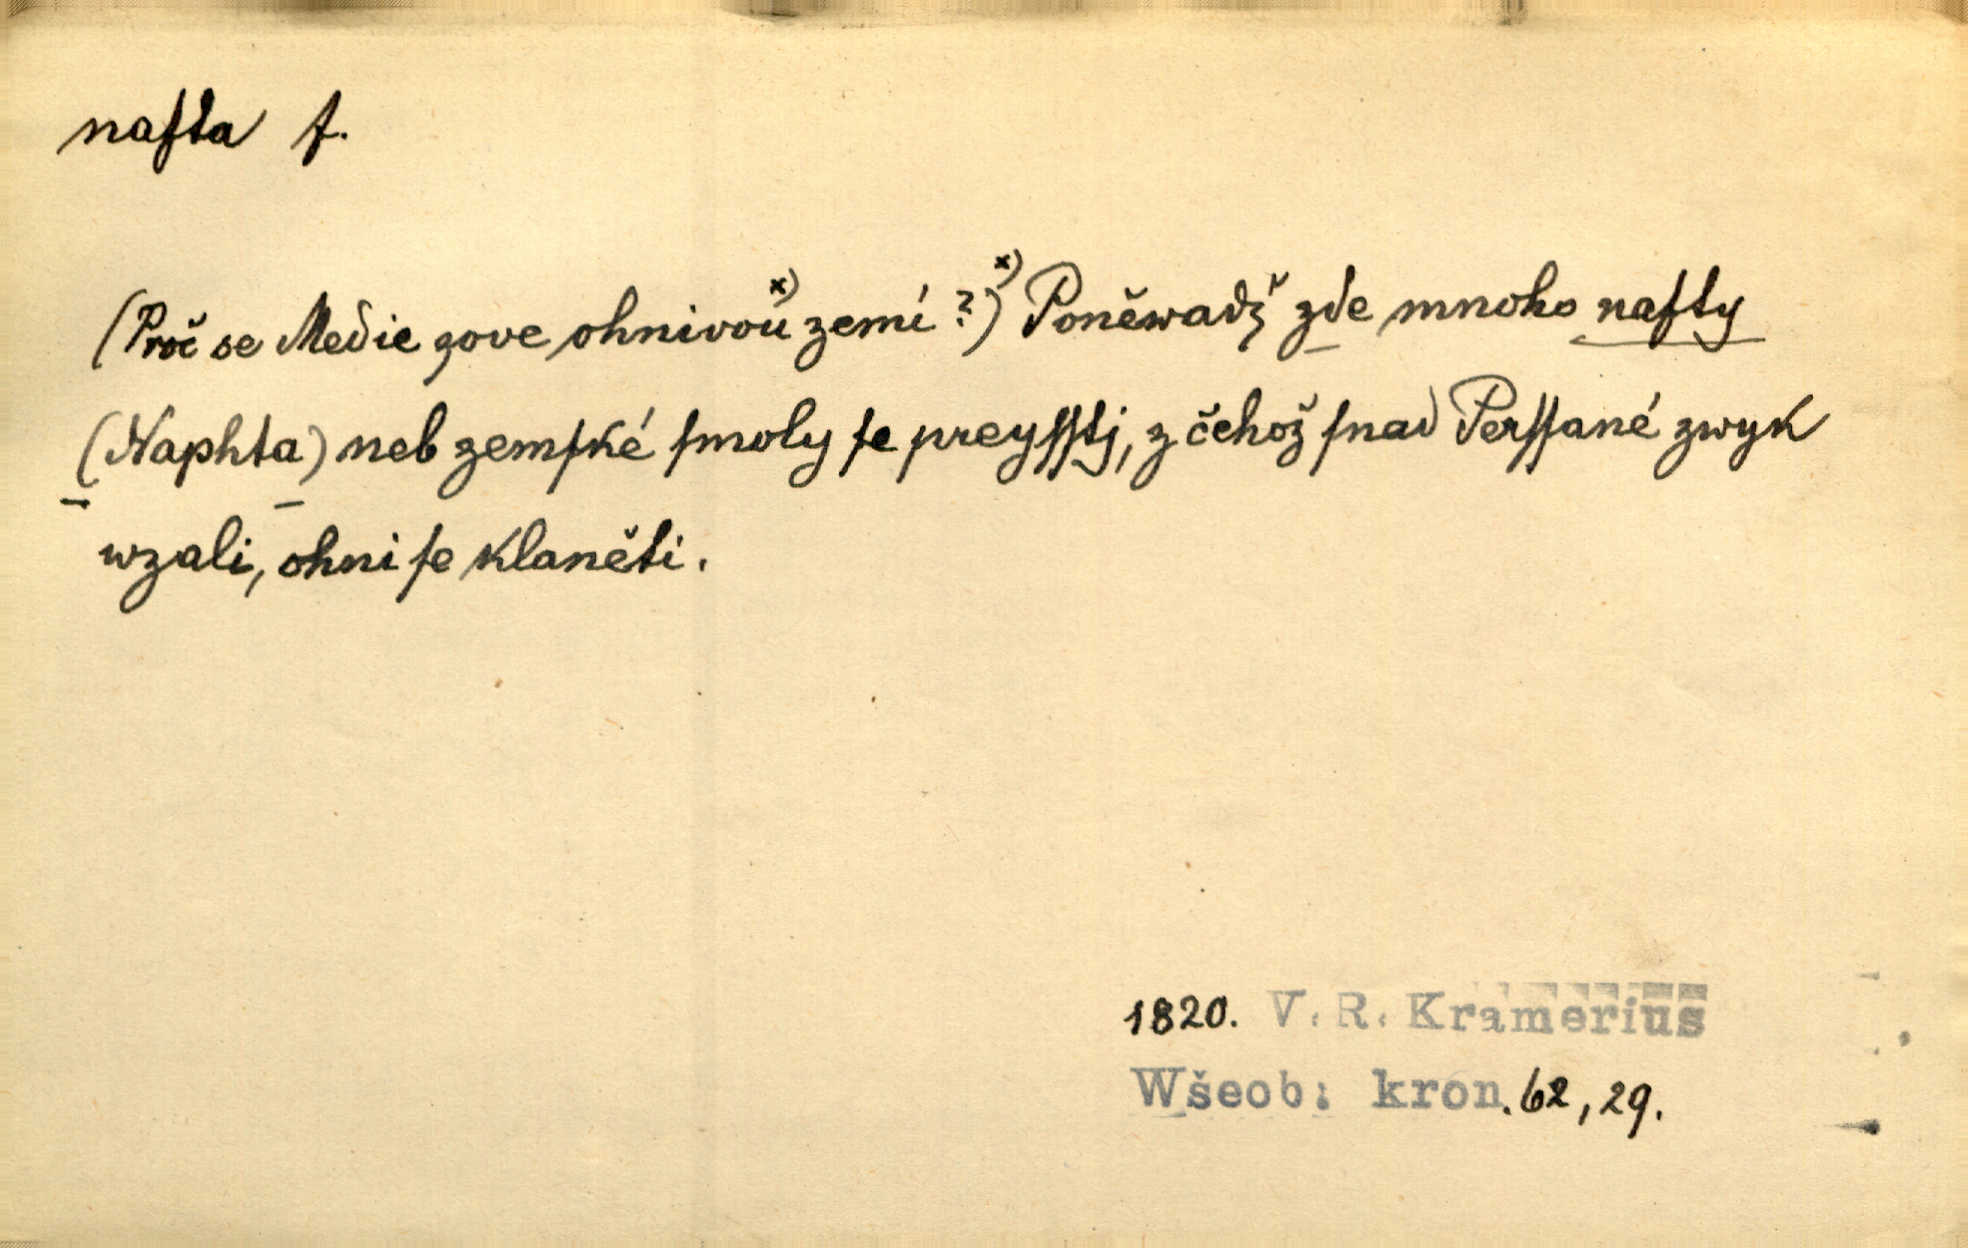 nafta f.
(Proč se Medie zove ohnivou x) zemí ?) x) Poněwadž zde mnoho nafty
(Naphta) neb zemſké ſmoly ſe preyſſtj, z čehož ſnad Perſſané zwyk
wzali, ohni ſe klaněti.
1820. V. R. Kramerius
Wšeob. kron. 62, 29.